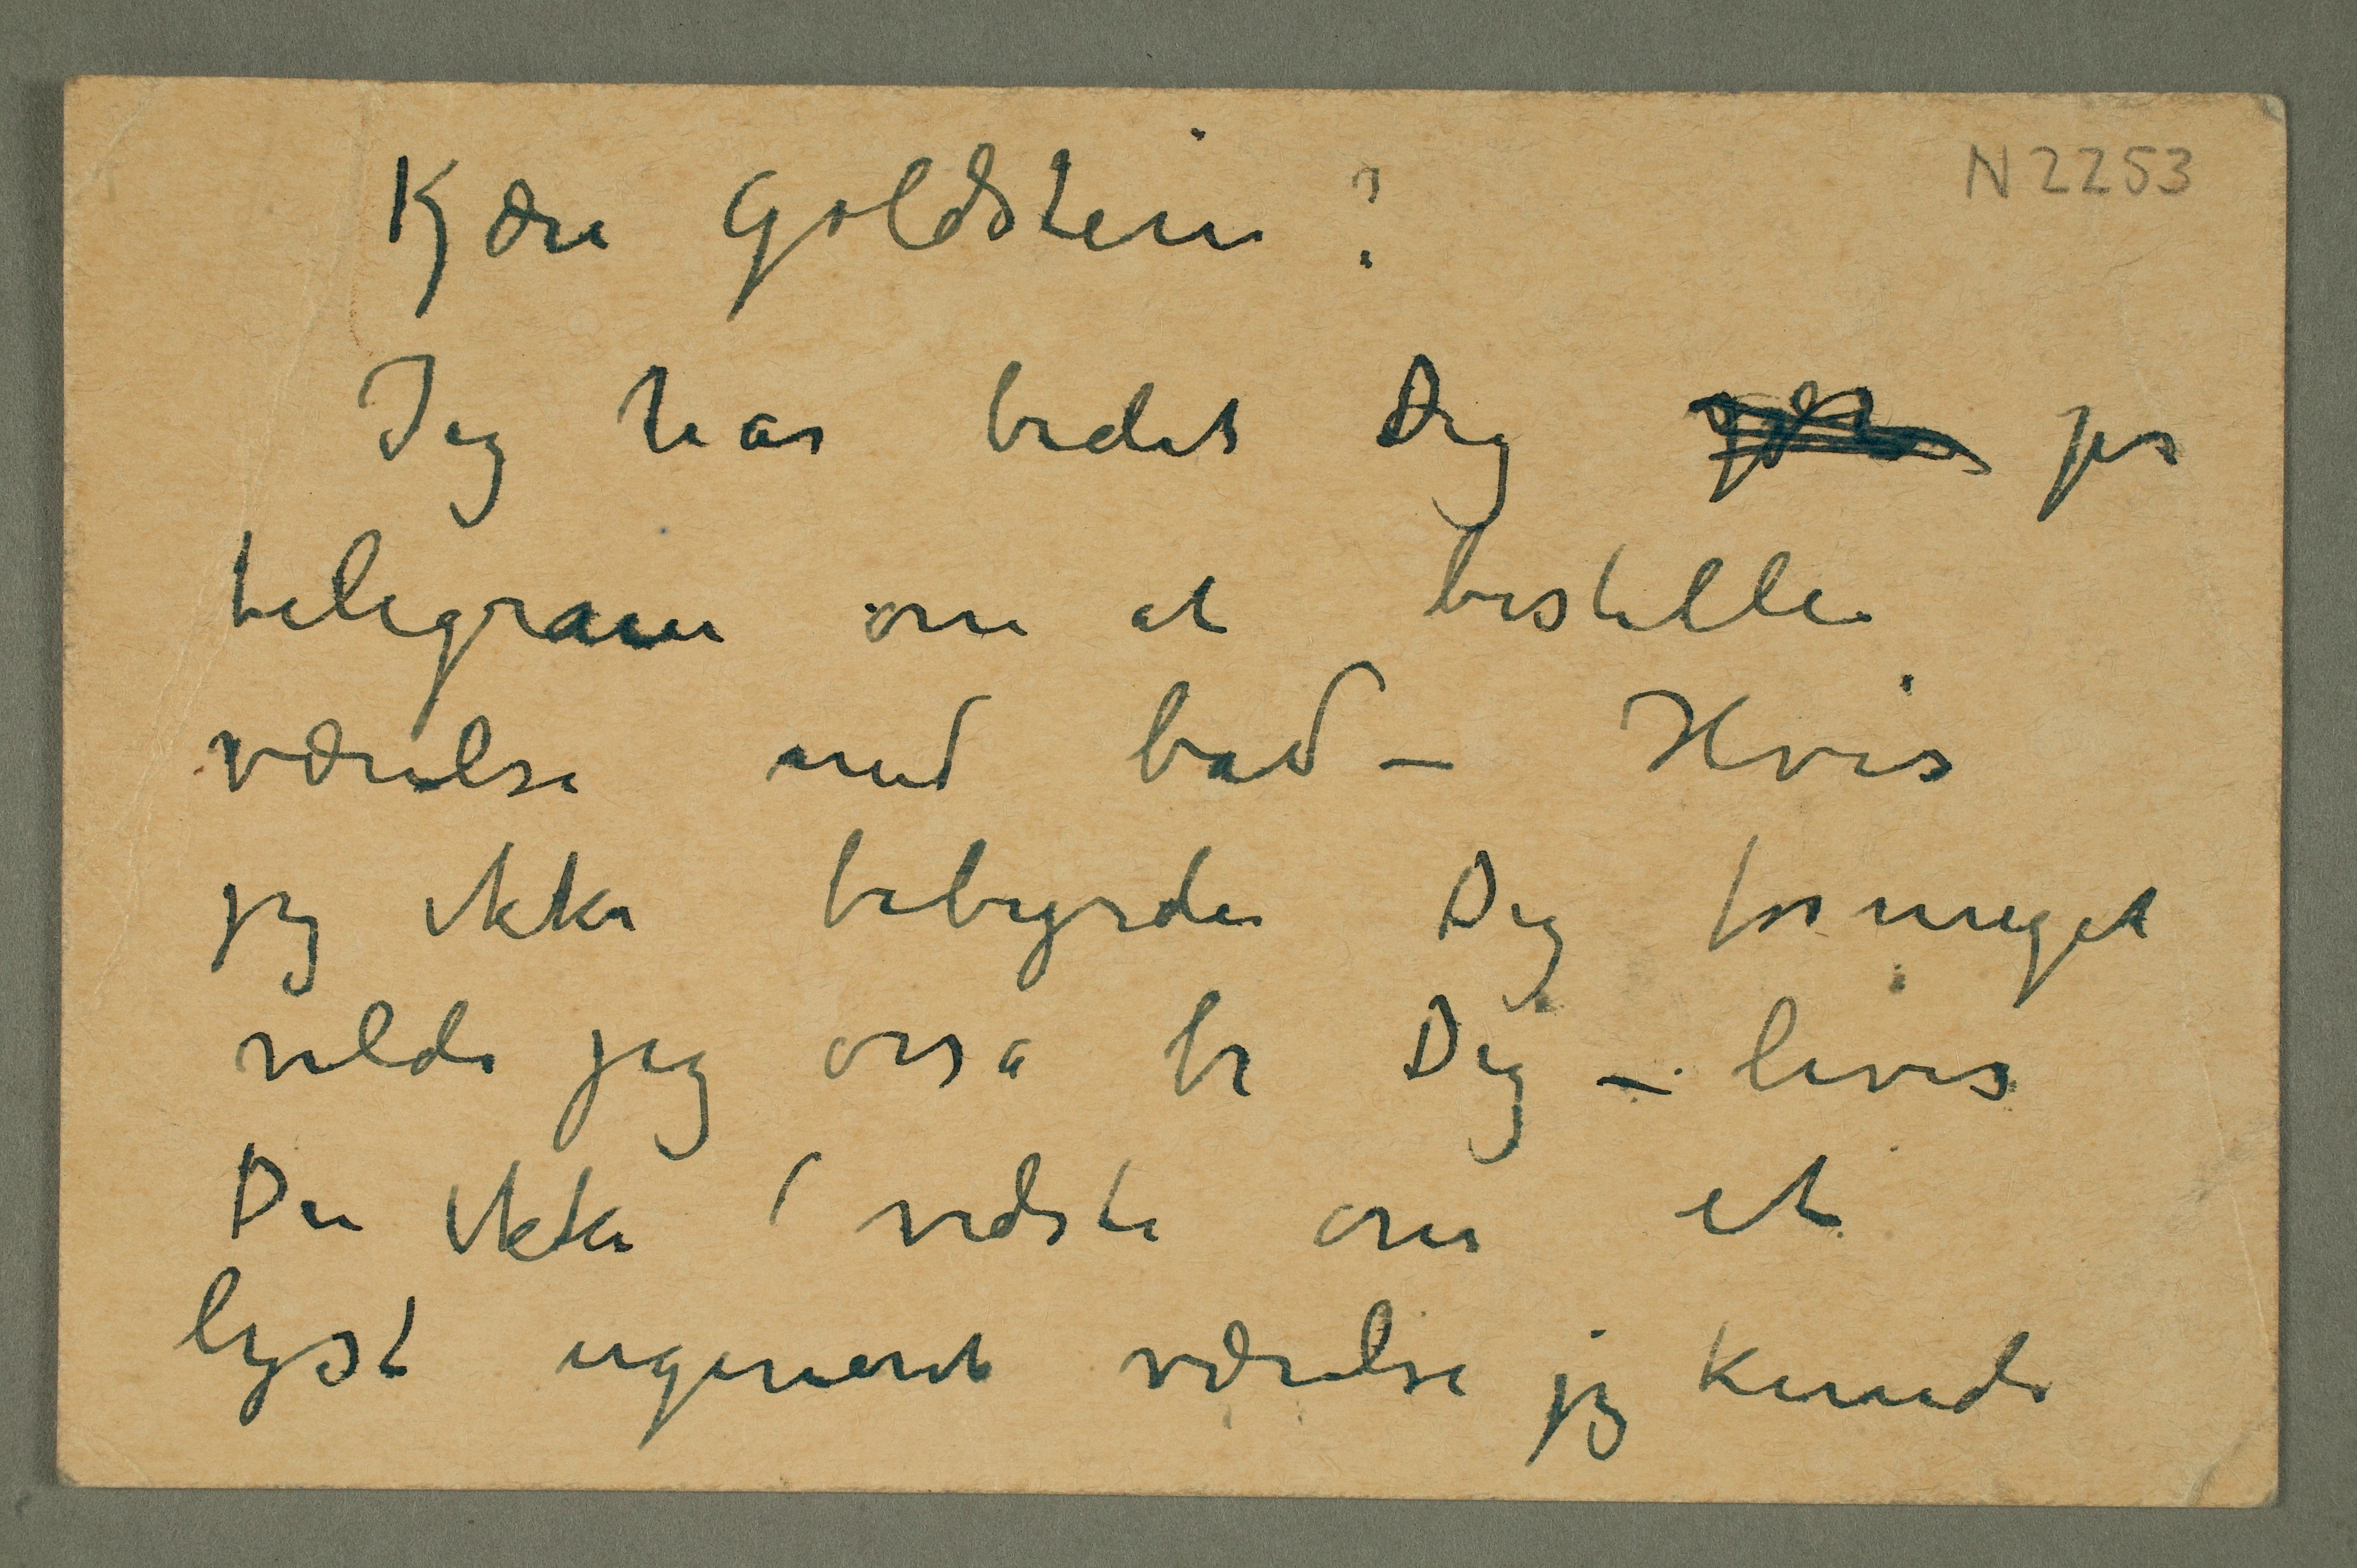 Kjære Goldstein!
N 2253
Jeg har bedet Dig pr
telegram om at bestille
værelse med bad – Hvis
jeg ikke bebyrder Dig formeget
vilde jeg osså be Dig – hvis
Du ikke vidste om et
lyst ugenert værelse jeg kunde